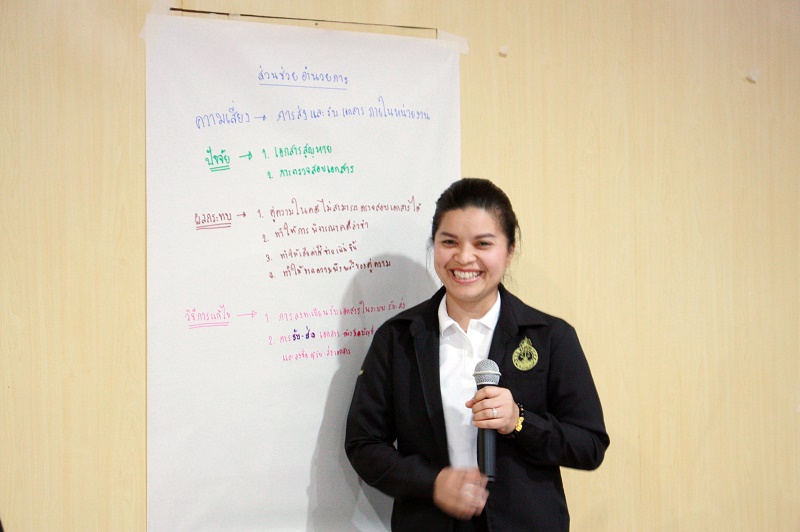 ส่วนช่วยอำนวยการ
ความเสี่ยง → การส่งและรับเอกสารภายในหน่วยงาน
ปัจจัย → 1. เอกสารสูญหาย
2. การตรวจสอบเอกสาร
ผลกระทบ → 1. คู่ความในคดีไม่สามารถตรวจสอบเอกสารได้
2. ทำให้การพิจารณาคดีล่าช้า
3. ทำให้
4. ทำให้ขาดความเชื่อมั่นของคู่ความ
วิธีการแก้ไข → 1. การลงทะเบียนรับเอกสารในระบบรับ-ส่ง
2. การรับ-ส่ง เอกสาร